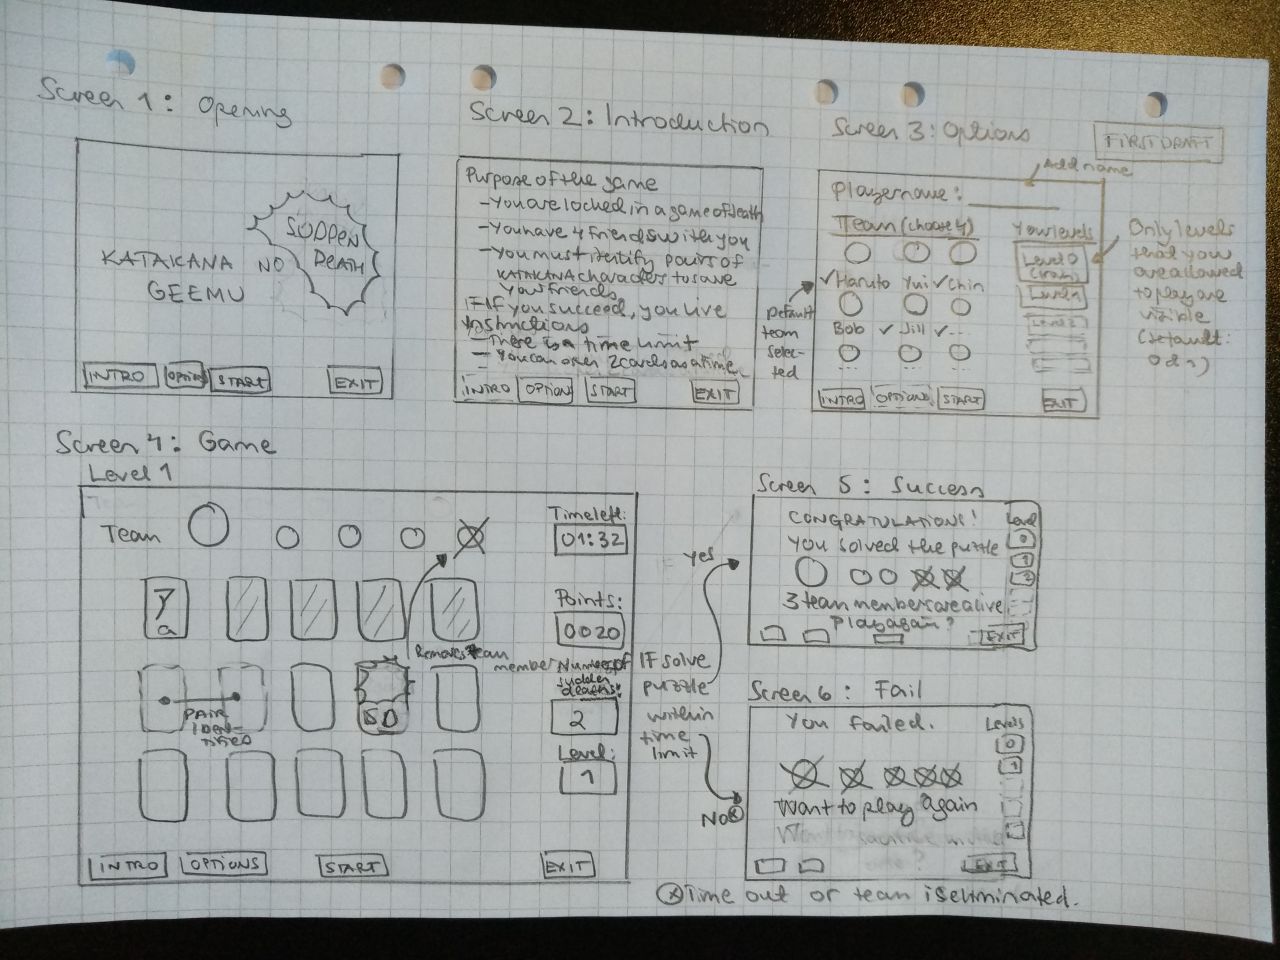 Screen 1: Opening
KATAKANA NO
GEEMU
SUDDEN
DEATH
INTRO
OPTION
START
EXIT
Screen 2: Introduction
Purpose of the game
- You are locked in a game of death
- You have 4 friends with you
- You must identify pairs of
KATAKANA characters to save
your friends
If you succeed, you live
Instructions
- There is a time limit
- You can open 2 cards at a time
INTRO
OPTION
START
EXIT
Screen 3: Options
FIRST DRAFT
Add name
Player name:
Team (choose 4)
Your levels
Level 0
✓ Haruto Yui ✓ Chin
Level 1
Bob ✓ Jill ✓ ...
Level 2
... ... ...
INTRO
OPTIONS
START
EXIT
Default
team
selec-
ted
Only levels
that you
are allowed
to play are
visible
(default:
Screen 4: Game
Level 1
Team
Time left:
01:32
ア
a
Points:
0020
Removes team
member
Number of
sudden
deaths:
2
SD
PAIR
IDEN-
TIFIED
Level:
1
INTRO
OPTIONS
START
EXIT
IF solve
puzzle
within
time
limit
Yes
No ⓧ
Screen 5: Success
CONGRATULATIONS!
You solved the puzzle
3 team members are alive
Play again?
Level
0
1
2
EXIT
Screen 6: Fail
You failed.
Levels
0
1
Want to play again
EXIT
ⓧ Time out or team is eliminated.